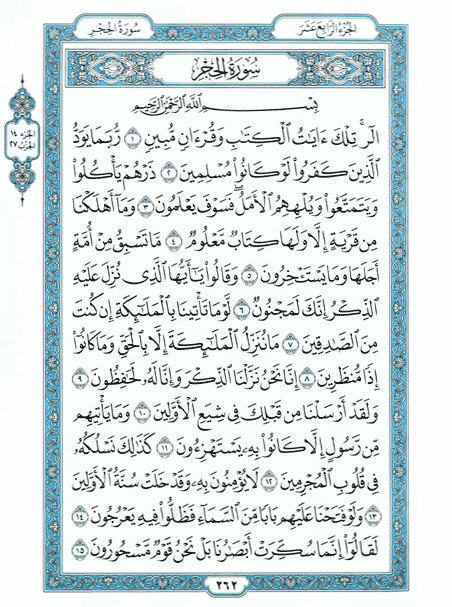 سُورَةُ الحِجْرِ
الجُزْءُ الرَّابِعَ عَشَرَ
سُورَةُ الحِجْرِ
الجزء ١٤
الحزب ٢٧
بِسْمِ اللَّهِ الرَّحْمَٰنِ الرَّحِيمِ
الٓرۚ تِلْكَ ءَايَٰتُ ٱلْكِتَٰبِ وَقُرْءَانٖ مُّبِينٖ ١ رُّبَمَا يَوَدُّ
ٱلَّذِينَ كَفَرُواْ لَوْ كَانُواْ مُسْلِمِينَ ٢ ذَرْهُمْ يَأْكُلُواْ
وَيَتَمَتَّعُواْ وَيُلْهِهِمُ ٱلْأَمَلُۖ فَسَوْفَ يَعْلَمُونَ ٣ وَمَآ أَهْلَكْنَا
مِن قَرْيَةٍ إِلَّا وَلَهَا كِتَابٞ مَّعْلُومٞ ٤ مَّا تَسْبِقُ مِنْ أُمَّةٍ
أَجَلَهَا وَمَا يَسْتَـْٔخِرُونَ ٥ وَقَالُواْ يَٰٓأَيُّهَا ٱلَّذِى نُزِّلَ عَلَيْهِ
ٱلذِّكْرُ إِنَّكَ لَمَجْنُونٞ ٦ لَّوْ مَا تَأْتِينَا بِٱلْمَلَٰٓئِكَةِ إِن كُنتَ
مِنَ ٱلصَّٰدِقِينَ ٧ مَا نُنَزِّلُ ٱلْمَلَٰٓئِكَةَ إِلَّا بِٱلْحَقِّ وَمَا كَانُوٓاْ
إِذٗا مُّنظَرِينَ ٨ إِنَّا نَحْنُ نَزَّلْنَا ٱلذِّكْرَ وَإِنَّا لَهُۥ لَحَٰفِظُونَ ٩
وَلَقَدْ أَرْسَلْنَا مِن قَبْلِكَ فِى شِيَعِ ٱلْأَوَّلِينَ ١٠ وَمَا يَأْتِيهِم
مِّن رَّسُولٍ إِلَّا كَانُواْ بِهِۦ يَسْتَهْزِءُونَ ١١ كَذَٰلِكَ نَسْلُكُهُۥ
فِى قُلُوبِ ٱلْمُجْرِمِينَ ١٢ لَا يُؤْمِنُونَ بِهِۦ وَقَدْ خَلَتْ سُنَّةُ ٱلْأَوَّلِينَ
١٣ وَلَوْ فَتَحْنَا عَلَيْهِم بَابٗا مِّنَ ٱلسَّمَآءِ فَظَلُّواْ فِيهِ يَعْرُجُونَ ١٤
لَقَالُوٓاْ إِنَّمَا سُكِّرَتْ أَبْصَٰرُنَا بَلْ نَحْنُ قَوْمٞ مَّسْحُورُونَ ١٥
٢٦٢